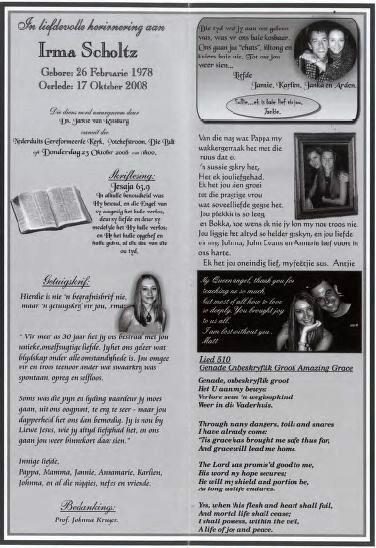 In liefdevolle herinnering aan
Irma Scholtz
Gebore: 26 Februarie 1978
Oorlede: 17 Oktober 2008
Die diens word waargeneem deur
Ds. Jansie van
vanuit die
Nederduits Gereformeerde Kerk, Potchefstroom, Die Bult
op Donderdag 23 Oktober 2008 om
Skriflesing:
Jesaja 63:9
In al hulle benoudheid was
Hy benoud, en die Engel van
sy aangesig het hulle verlos,
deur sy liefde en deur sy
medelye het Hy hulle verlos;
en Hy het hulle opgehef en
hulle gedra, al die dae van die
ou tyd.
Getuigskrif:
Hierdie is nie 'n begrafnisbrief nie,
maar 'n getuigskrif vir jou, Irma:
" Vir meer as 30 jaar het jy ons bestraal met jou
unieke, onselfsugtige liefde. Jy het ons geleer wat
blydskap onder alle omstandighede is. Jou omgee
vir en troos teenoor ander wie swaarkry was
spontaan, opreg en selfloos.
Soms was die pyn en lyding waardeur jy moes
gaan, uit ons oogpunt, te erg te seer - maar jou
dapperheid het ons dan bemoedig. Jy is nou by
Liewe Jesus, wie jy altyd liefgehad het, en ons
gaan jou weer binnekort daar sien."
Innige liefde,
Pappa, Mamma, Jannie, Annamarie, Karlien,
Johnna, en al die niggies, nefies en vriende.
Bedanking:
Prof. Johnna Kruger.
Die tyd wat jy aan ons geleen
was, was vir ons baie kosbaar.
Ons gaan jou "chats", biltong en
baie mis. Tot ons jou
weer sien...
Liefde
Jannie, Karlien, Janka en Arden.
ek is baie lief vir jou,
Van die nag wat Pappa my
wakkergemaak het met die
nuus dat o.
'n sussie gekry het,
Het ek jou liefgehad.
Ek het jou sien groei
tot die pragtige vrou
wat soveel liefde gegee het.
Jou plekkie is so leeg
en Bokka, toe wens ek nie jy kon my nog troos nie.
Jou liggie het altyd so helder geskyn, en jou liefde
vir my, Johnna, John Evans en Annarie leef voort in
ons harte.
Ek het jou oneindig lief, my feëtjie sus. Antjie
My Queenangel, thank you for
teaching us so much,
but most of all how to love
so deeply. You brought joy
to us all.
I am lost without you.
Matt
Lied 510
Genade Onbeskryflik Groot Amazing Grace
Genade, onbeskryflik groot
Het U aan my bewys:
Verlore seun 'n wegloopkind
Weer in die Vaderhuis.
Through many dangers, toils and snares
I have already come:
'Tis grace has brought me safe thus far,
And grace will lead me home.
The Lord has promis'd good to me,
His word my hope secures;
He will my shield and portion be,
As long as life endures.
Yes, when this flesh and heart shall fail,
And mortal life shall cease;
I shall possess, within the veil,
A life of joy and peace.